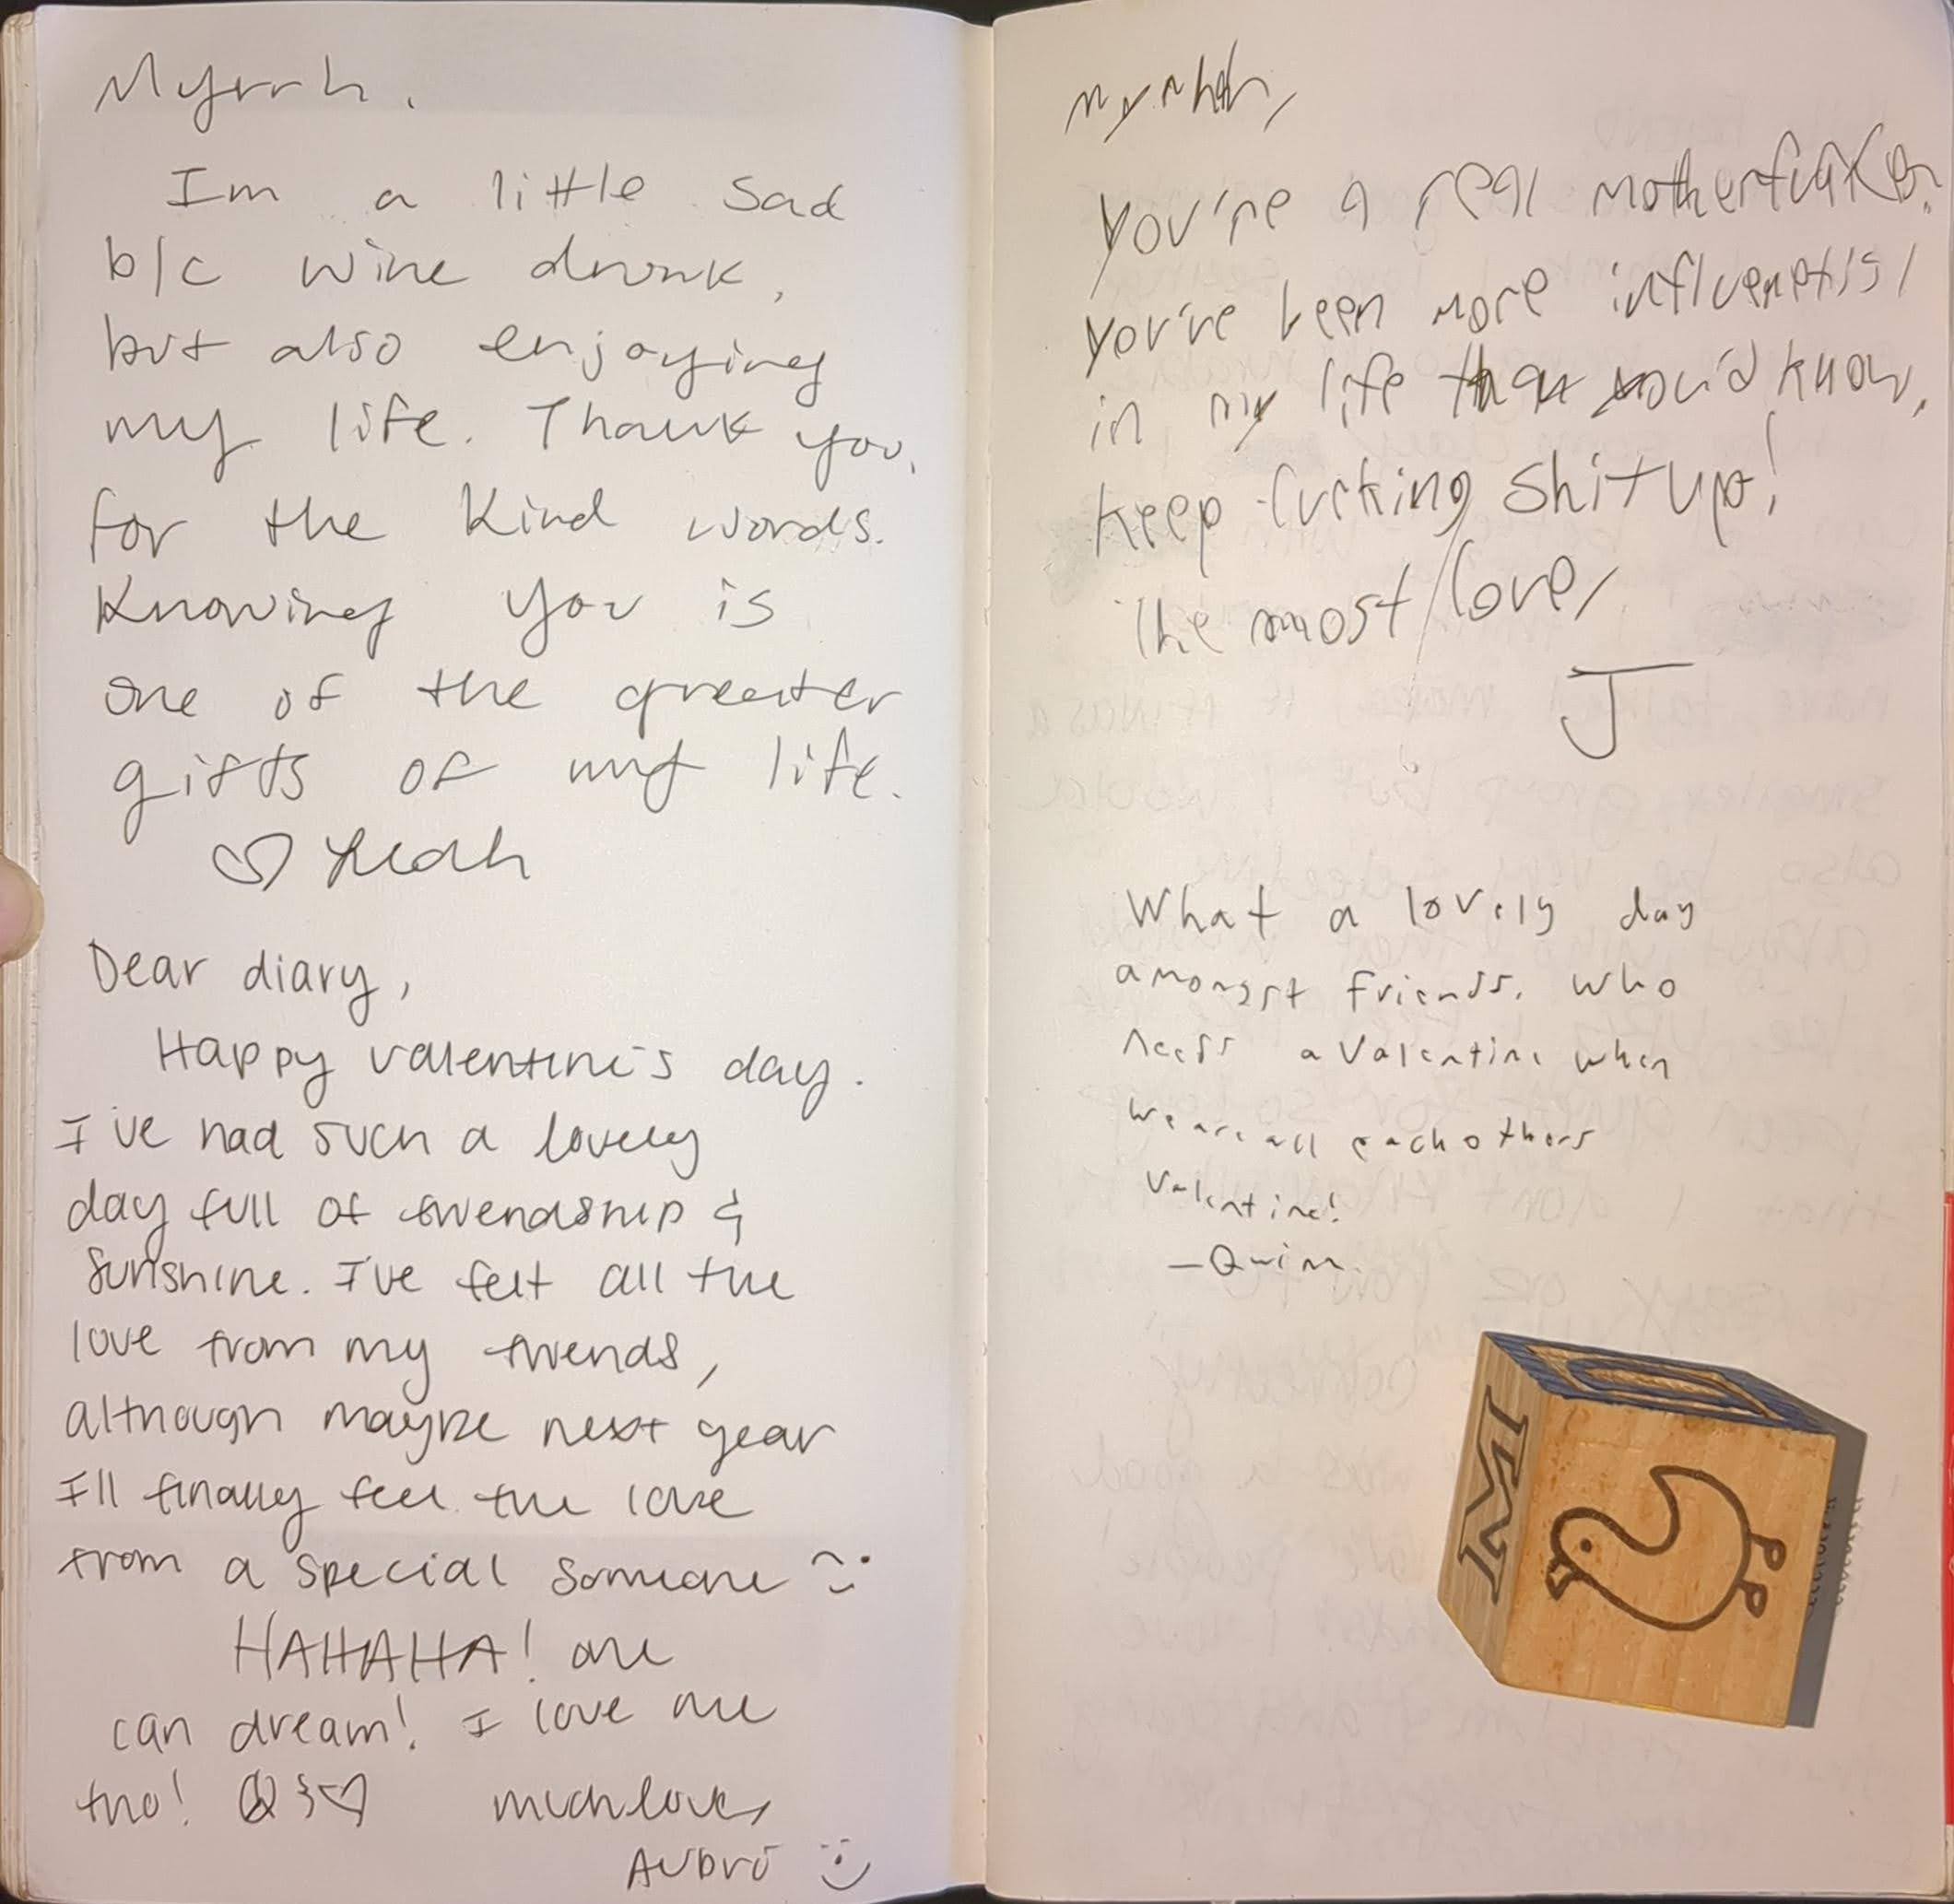 Myrrh.
Im a little sad
b/c wine drunk,
but also enjoying
my life. Thank you,
for the kind words.
Knowing you is
one of the greater
gifts of my life.
♡ Leah
Dear diary,
Happy valentine's day.
I've had such a lovely
day full of friendship &
sunshine. I've felt all the
love from my friends,
although maybe next year
I'll finally feel the love
from a special someone
HAHAHA! one
can dream! I love me
tho! ☮ & ♡ much love,
AUBRI :)
myrhh,
You're a real motherfucker.
you've been more influential
in my life than you'd know,
keep fucking shit up!
The most love,
J
What a lovely day
amongst friends. Who
needs a Valentine when
we are all each others
Valentine!
—Quinn
W